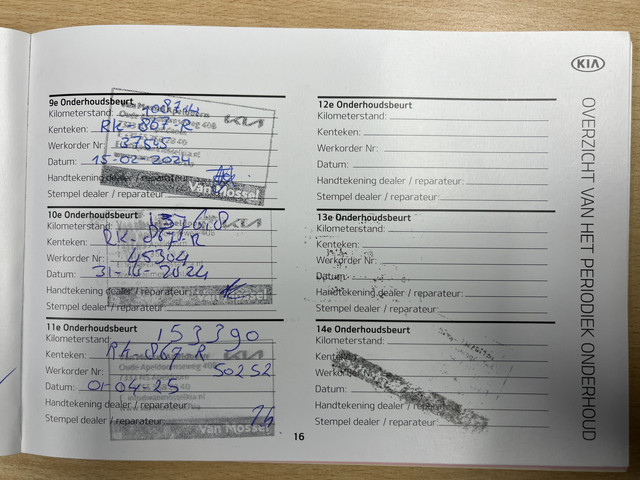 KIA
OVERZICHT VAN HET PERIODIEK ONDERHOUD
9e Onderhoudsbeurt
Kilometerstand:
Kenteken: RK-867-R
Werkorder Nr: 37545
Datum: 15-02-2024
Handtekening dealer / reparateur:
Stempel dealer / reparateur:
KIA
Van Mossel
10e Onderhoudsbeurt
Kilometerstand:
Kenteken: RK-867-R
Werkorder Nr: 45304
Datum:
Handtekening dealer / reparateur:
Stempel dealer / reparateur:
KIA
Van Mossel
11e Onderhoudsbeurt
Kilometerstand: 153390
Kenteken: RK 867 R
Werkorder Nr: 50252
Datum: 01-04-25
Handtekening dealer / reparateur:
Stempel dealer / reparateur:
KIA
Oude Apeldoornseweg 40B
Van Mossel
12e Onderhoudsbeurt
Kilometerstand:
Kenteken:
Werkorder Nr:
Datum:
Handtekening dealer / reparateur:
Stempel dealer / reparateur:
13e Onderhoudsbeurt
Kilometerstand:
Kenteken:
Werkorder Nr:
Datum:
Handtekening dealer / reparateur:
Stempel dealer / reparateur:
14e Onderhoudsbeurt
Kilometerstand:
Kenteken:
Werkorder Nr:
Datum:
Handtekening dealer / reparateur:
Stempel dealer / reparateur:
16